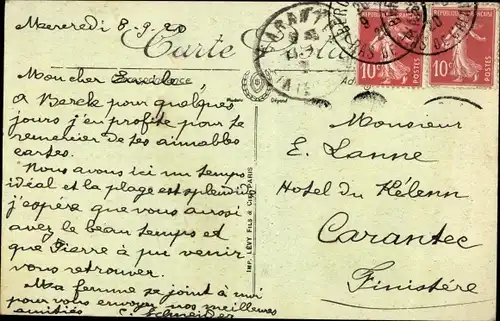 Mercredi 8-9-20
Carte Postale
CARANTEC
Mon cher
Correspondance
à Berck pour quelques
jours j'en profite pour te
remercier de tes aimables
cartes.
Nous avons ici un temps
idéal et la plage est splendide
j'espère que vous aussi
avez le beau temps et
que Pierre a pu venir
vous retrouver.
Ma femme se joint à moi
pour vous envoyer nos meilleures
amitiés
E. Schneider
IMP. LÉVY FILS & CIE, PARIS
10c POSTES
10c POSTES
Monsieur
E. Lanne
Hotel du Kélenn
Carantec
Finistère